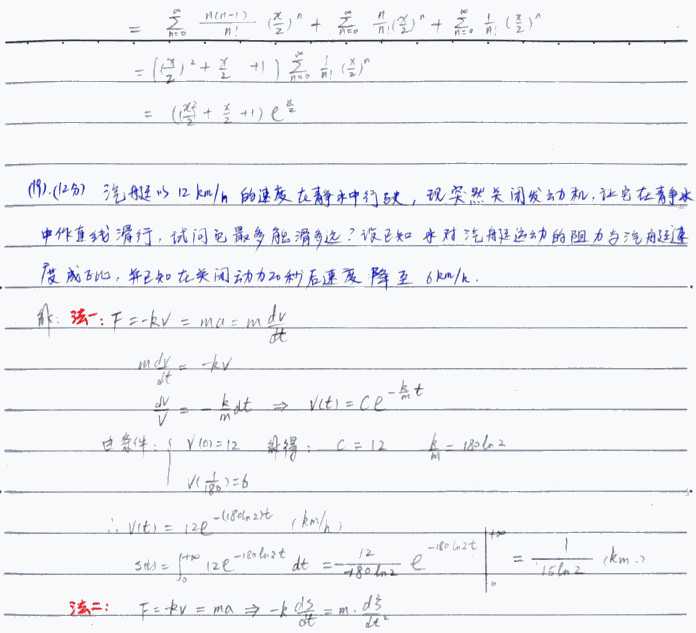 = ∑_{n=0}^{∞} \frac{n(n-1)}{n!} (\frac{x}{2})^n + ∑_{n=0}^{∞} \frac{n}{n!} (\frac{x}{2})^n + ∑_{n=0}^{∞} \frac{1}{n!} (\frac{x}{2})^n
= ((\frac{x}{2})^2 + \frac{x}{2} + 1) ∑_{n=0}^{∞} \frac{1}{n!} (\frac{x}{2})^n
= (\frac{x^2}{2} + \frac{x}{2} + 1) e^{\frac{x}{2}}
(19).(12分) 汽艇以 12 km/h 的速度在静水中行驶, 现突然关闭发动机, 让它在静水
中作直线滑行, 试问它最多能滑多远? 设已知 水对汽艇运动的阻力与汽艇速
度成正比, 并已知在关闭动力20秒后速度 降至 6 km/h.
解: 法一: F = -kv = ma = m\frac{dv}{dt}
m\frac{dv}{dt} = -kv
\frac{dv}{v} = -\frac{k}{m}dt ⇒ v(t) = Ce^{-\frac{k}{m}t}
由条件: { v(0)=12 解得: C = 12 \frac{k}{m} = 180 ln 2
v(\frac{1}{180})=6
∴ v(t) = 12e^{-(180ln2)t} (km/h)
s(t) = ∫_0^{+∞} 12e^{-180ln2t} dt = \frac{12}{-180ln2} e^{-180ln2t} |_0^{+∞} = \frac{1}{15ln2} (km.)
法二: F = -kv = ma ⇒ -k\frac{ds}{dt} = m·\frac{d^2s}{dt^2}